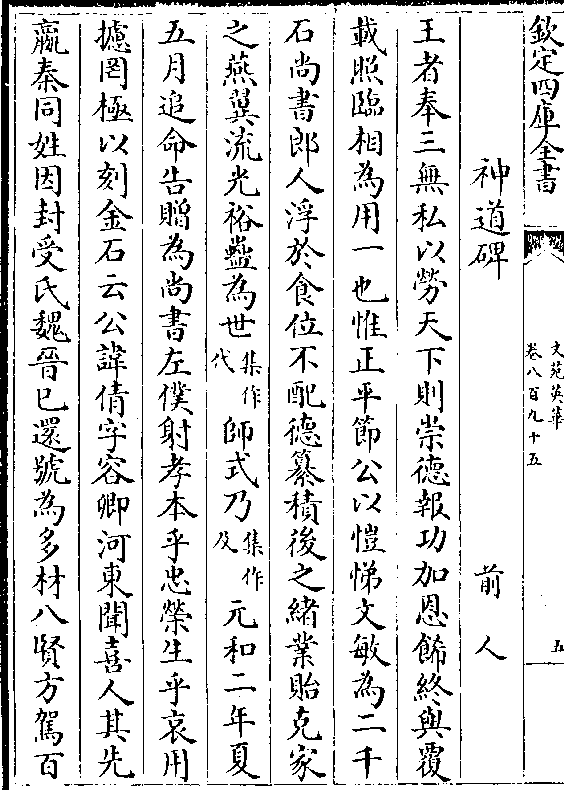 欽定四庫全書
文苑英華
卷八百九十五
五
神道碑
前人
王者奉三無私以勞天下則崇德報功加恩餙終與覆
載照臨相為用一也惟正平節公以愷悌文敏為二千
石尚書郎人浮於食位不配德纂積後之緒業貽克家
之燕翼流光裕蠱為世集作代師式乃集作及元和二年夏
五月追命告贈為尚書左僕射孝本乎忠榮生乎哀用
攄罔極以刻金石云公諱倩字容卿河東聞喜人其先
嬴秦同姓因封受氏魏晉已還號為多材八賢方駕百